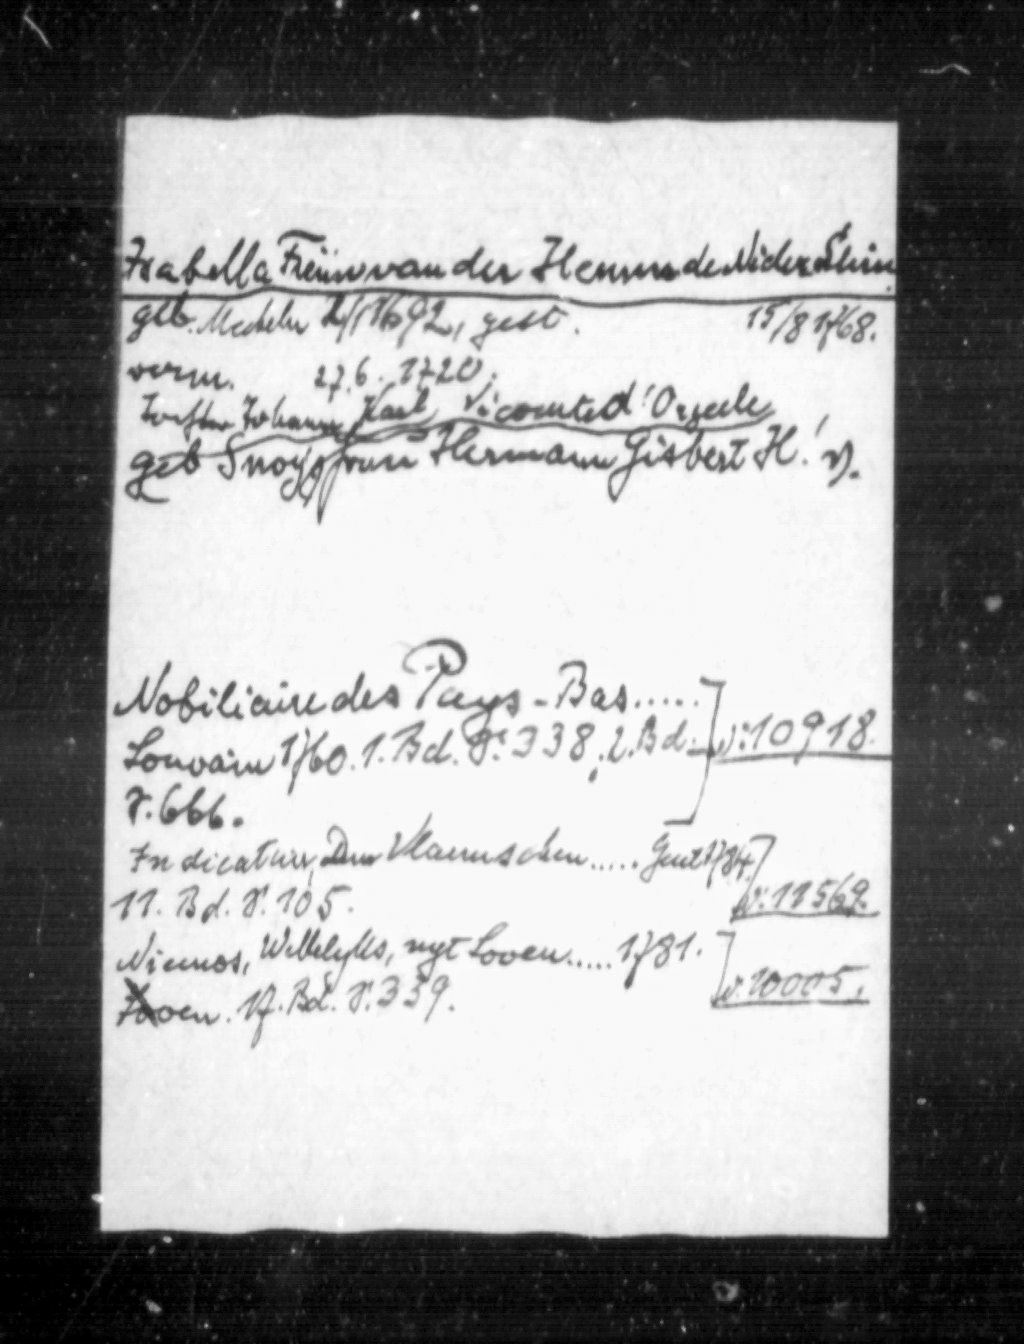 Isabella Freiin van der Hemm de Niderstein
geb. Mecheln 2/1 1692, gest. 15/8 1768.
verm. 27.6. 1720.
Johann Karl Vicomte d'Orzeele
geb Snoys frau Hermann Gisbert H. v.
Nobiliaire des Pays-Bas.....
Louvain 1760. 1. Bd. S. 338, 2. Bd. v: 10918.
S. 666.
Indicateur, Den Vlaemschen..... Gent 1784.
11. Bd. S. 105. v: 11569.
Niemos, Wekelyks, uyt Loven..... 1781.
Loven. 17. Bd. S. 339. v. 10005.